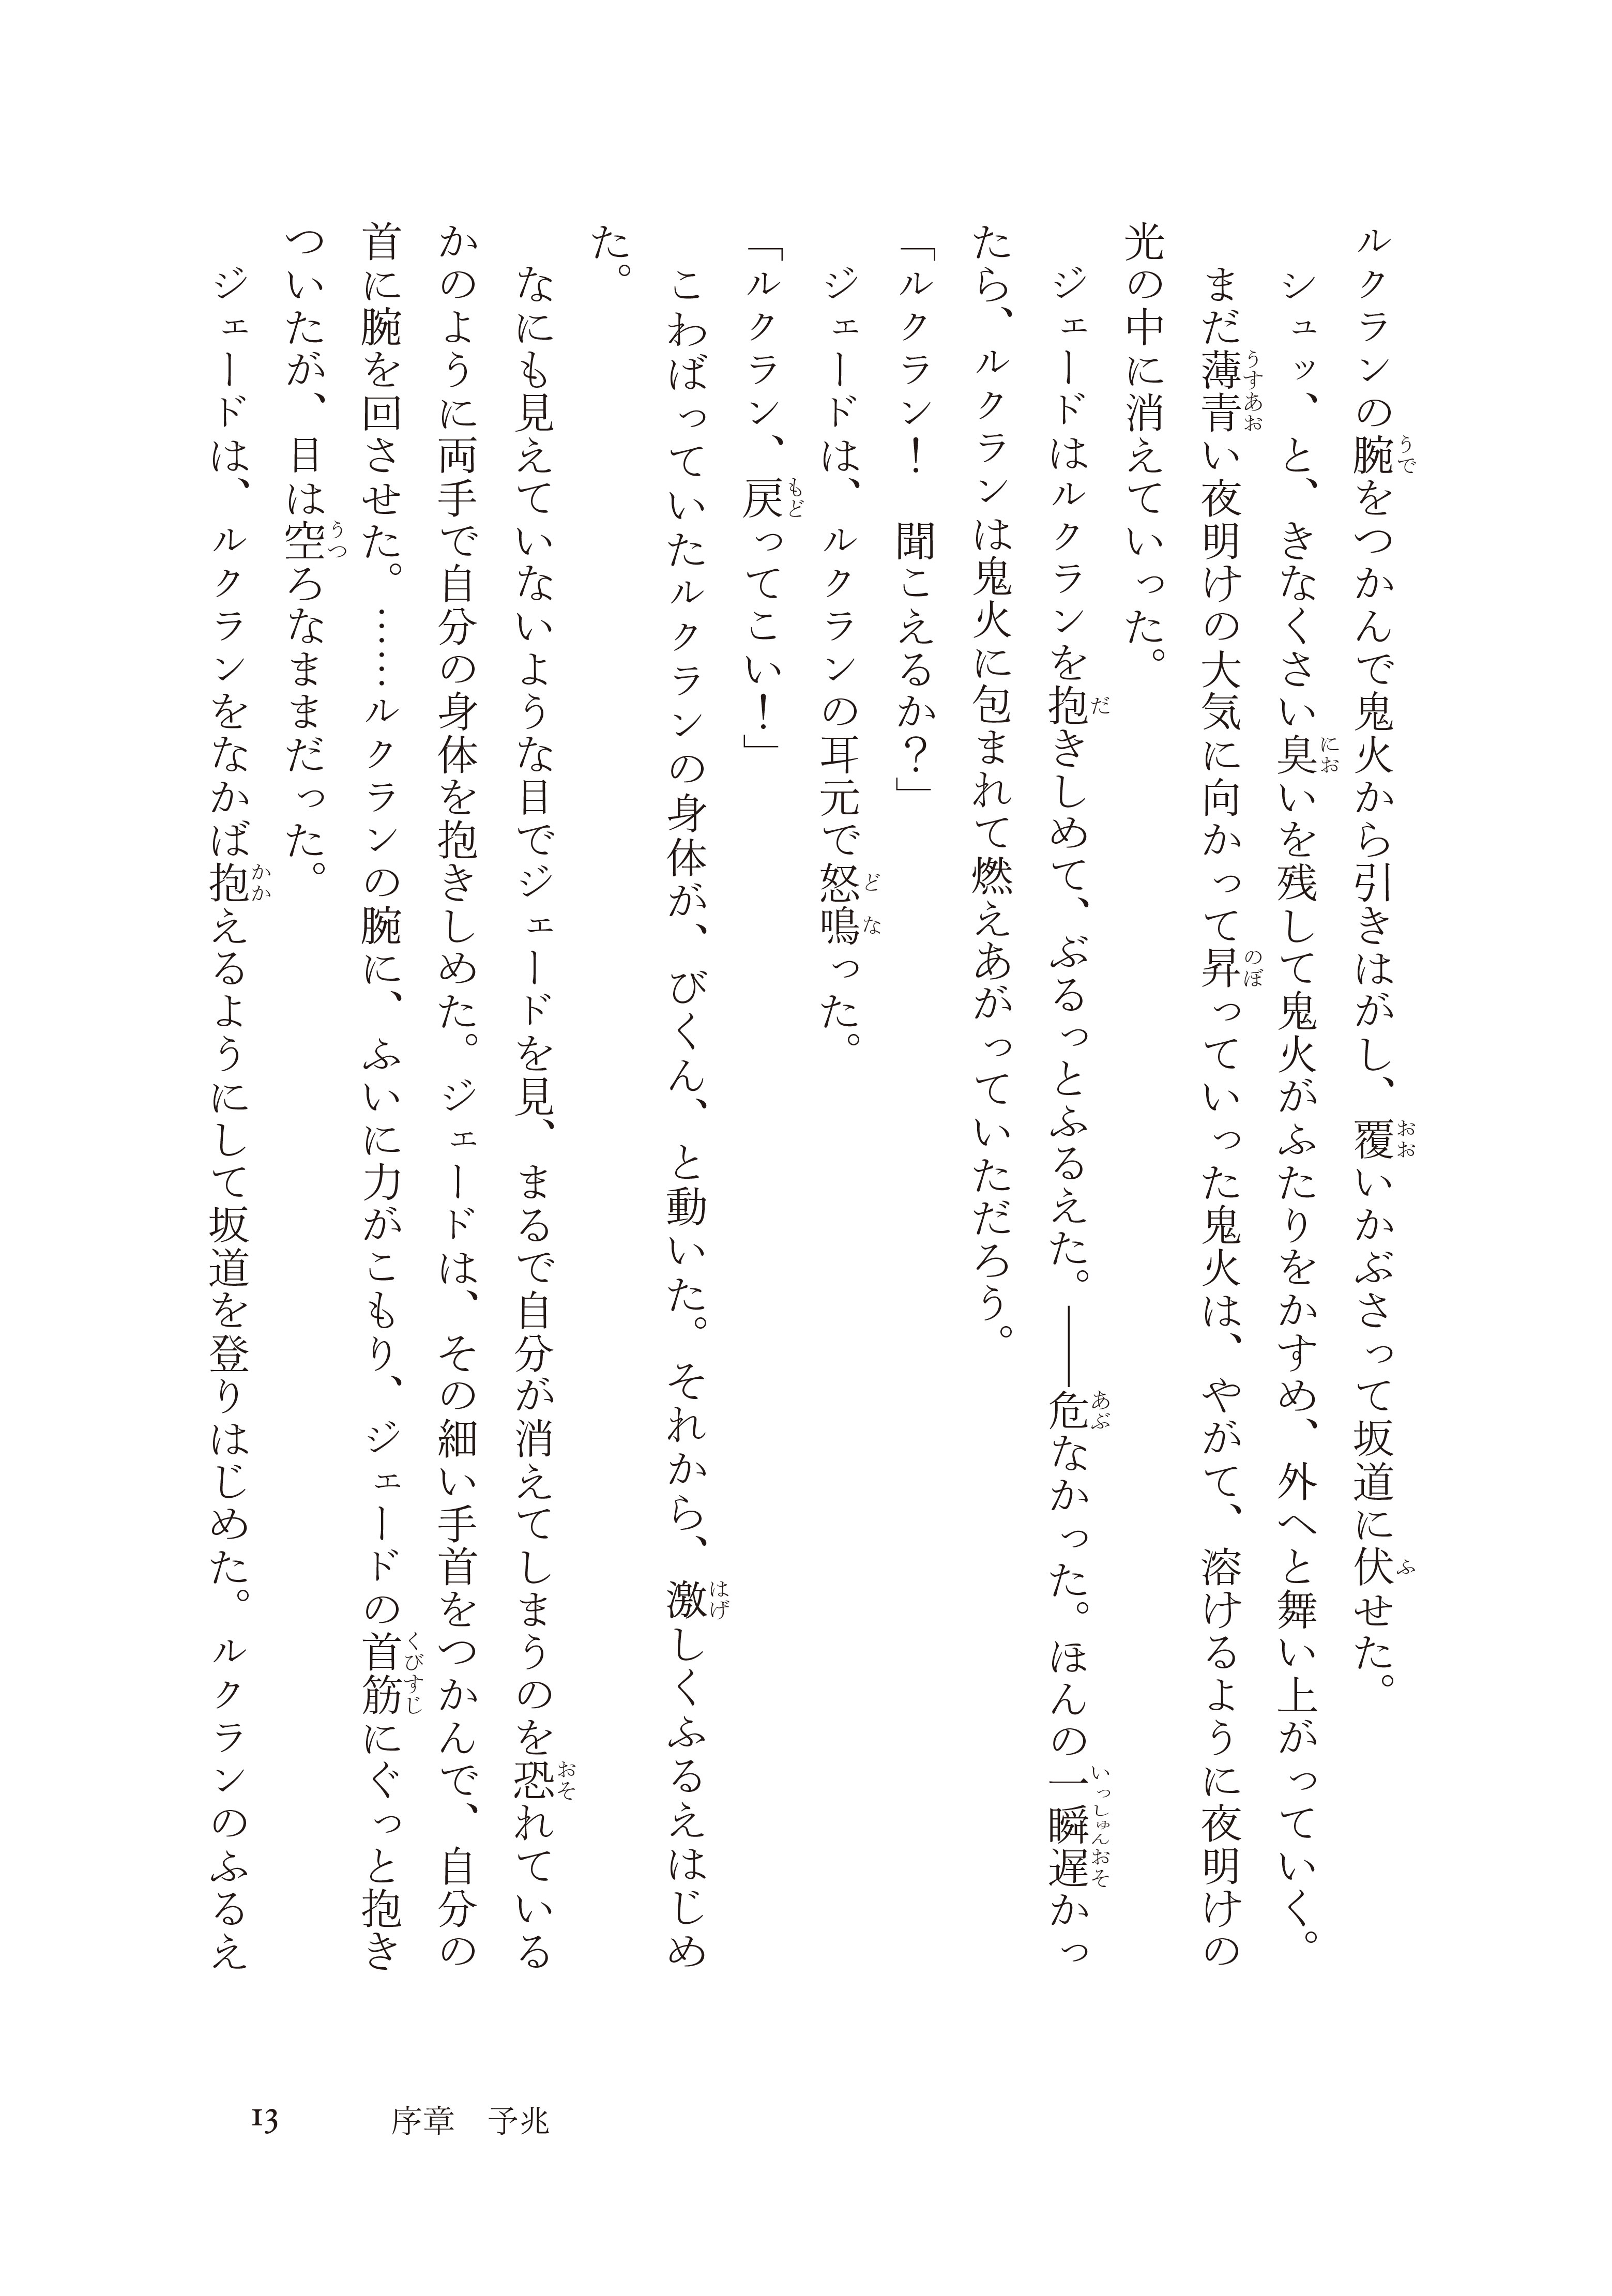 ルクランの腕をつかんで鬼火から引きはがし、覆いかぶさって坂道に伏せた。
　シュッ、と、きなくさい臭いを残して鬼火がふたりをかすめ、外へと舞い上がっていく。
　まだ薄青い夜明けの大気に向かって昇っていった鬼火は、やがて、溶けるように夜明けの
光の中に消えていった。
　ジェードはルクランを抱きしめて、ぶるっとふるえた。――危なかった。ほんの一瞬遅かっ
たら、ルクランは鬼火に包まれて燃えあがっていただろう。
「ルクラン！　聞こえるか？」
　ジェードは、ルクランの耳元で怒鳴った。
「ルクラン、戻ってこい！」
　こわばっていたルクランの身体が、びくん、と動いた。それから、激しくふるえはじめ
た。
　なにも見えていないような目でジェードを見、まるで自分が消えてしまうのを恐れている
かのように両手で自分の身体を抱きしめた。ジェードは、その細い手首をつかんで、自分の
首に腕を回させた。……ルクランの腕に、ふいに力がこもり、ジェードの首筋にぐっと抱き
ついたが、目は空ろなままだった。
　ジェードは、ルクランをなかば抱えるようにして坂道を登りはじめた。ルクランのふるえ
13　序章　予兆